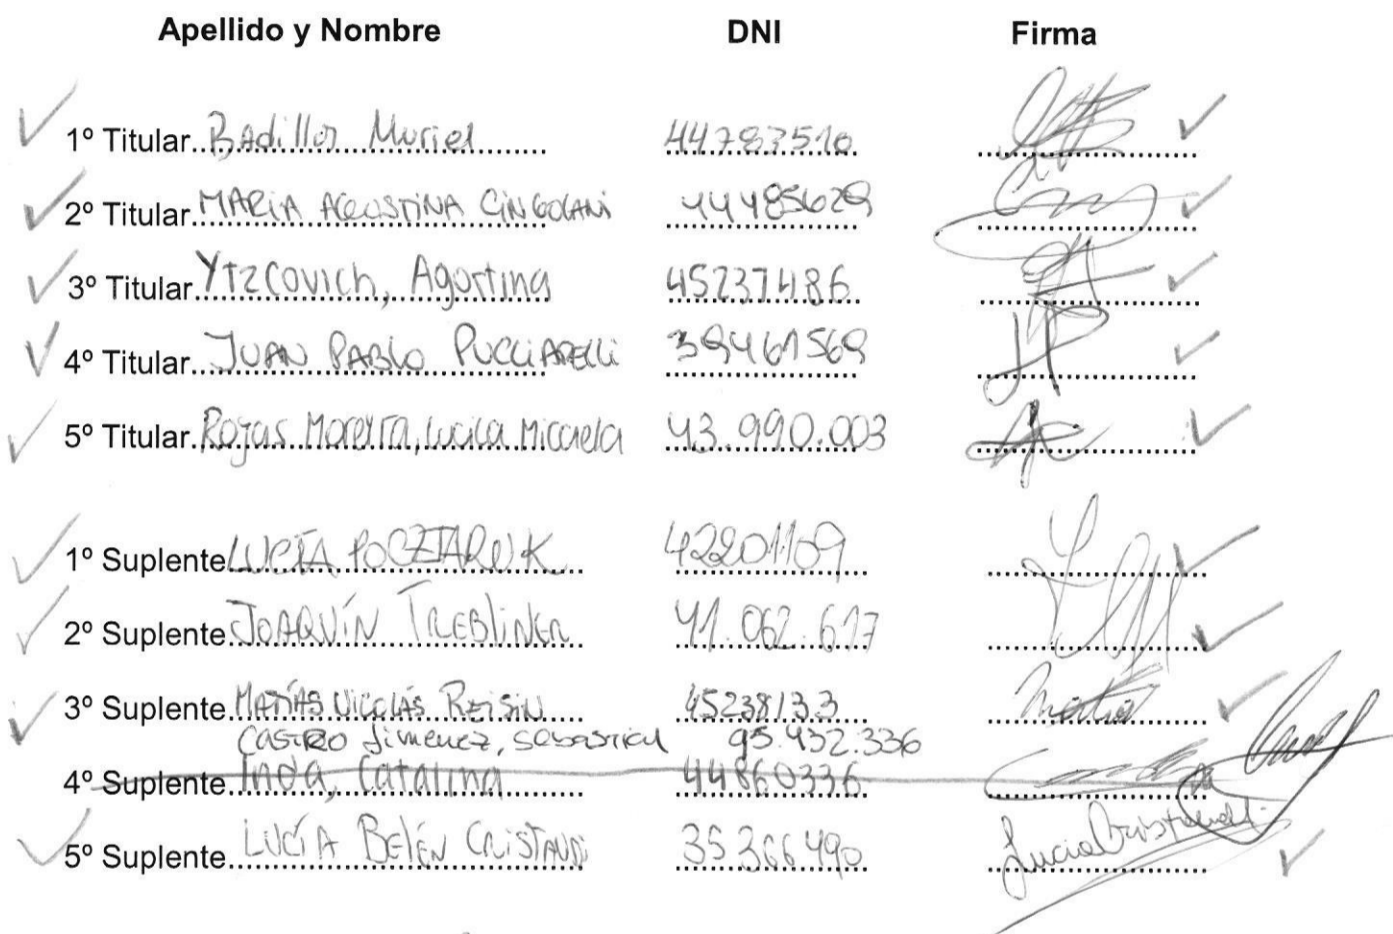 Apellido y Nombre DNI Firma
1º Titular Badillo, Muriel 44783510
2º Titular MARÍA AGOSTINA CINGOLANI 44485629
3º Titular Ytzcovich, Agostina 45237486
4º Titular JUAN PABLO PUCCIARELLI 39461569
5º Titular Rojas Moreyra, Lucila Micaela 43.990.003
1º Suplente LUCÍA POCZTARUK 42201109
2º Suplente JOAQUÍN TREBLINKA 41.062.617
3º Suplente MATÍAS NICOLÁS REISIN 45238133 Matias
CASTRO Jimenez, Sebastian 95.932.336
4º Suplente Inda, Catalina 44860336
5º Suplente LUCÍA BELÉN CRISTAUDI 35366490 Lucia Cristaudi